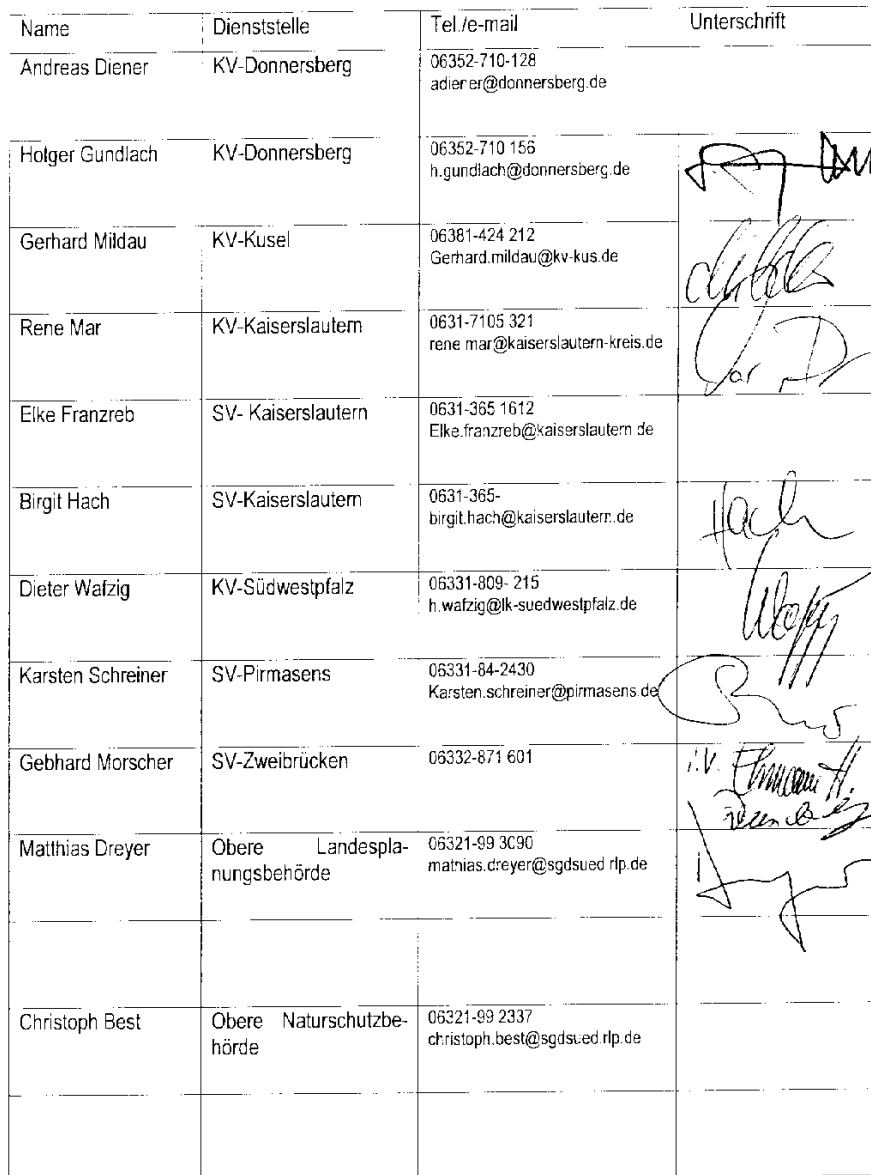 Name Dienststelle Tel./e-mail Unterschrift
Andreas Diener KV-Donnersberg 06352-710-128
adiener@donnersberg.de
Holger Gundlach KV-Donnersberg 06352-710 156
h.gundlach@donnersberg.de
Gerhard Mildau KV-Kusel 06381-424 212
Gerhard.mildau@kv-kus.de
Rene Mar KV-Kaiserslautern 0631-7105 321
rene mar@kaiserslautern-kreis.de
Elke Franzreb SV- Kaiserslautern 0631-365 1612
Elke.franzreb@kaiserslautern de
Birgit Hach SV-Kaiserslautern 0631-365-
birgit.hach@kaiserslautern.de Hach
Dieter Wafzig KV-Südwestpfalz 06331-809- 215
h.wafzig@lk-suedwestpfalz.de
Karsten Schreiner SV-Pirmasens 06331-84-2430
Karsten.schreiner@pirmasens.de
Gebhard Morscher SV-Zweibrücken 06332-871 601 i.V.
Matthias Dreyer Obere Landespla- 06321-99 3090
nungsbehörde mathias.dreyer@sgdsued rlp.de
Christoph Best Obere Naturschutzbe- 06321-99 2337
hörde christoph.best@sgdsued.rlp.de